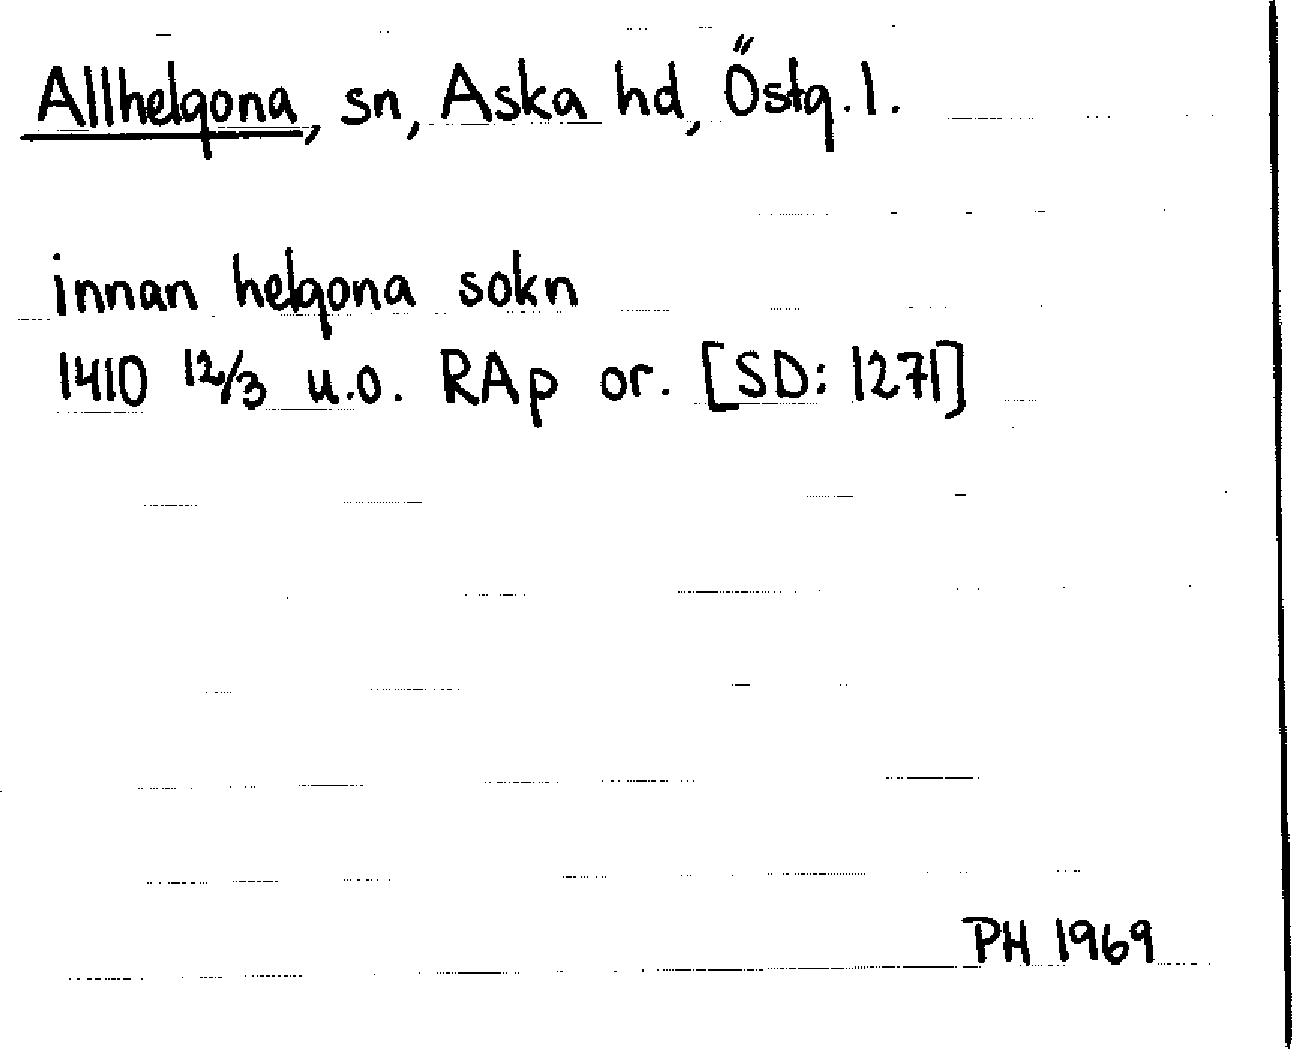 Allhelgona, sn, Aska hd, Östg. l.
innan helgona sokn
1410 12/3 u.o. RAp or. [SD: 1271]
PH 1969